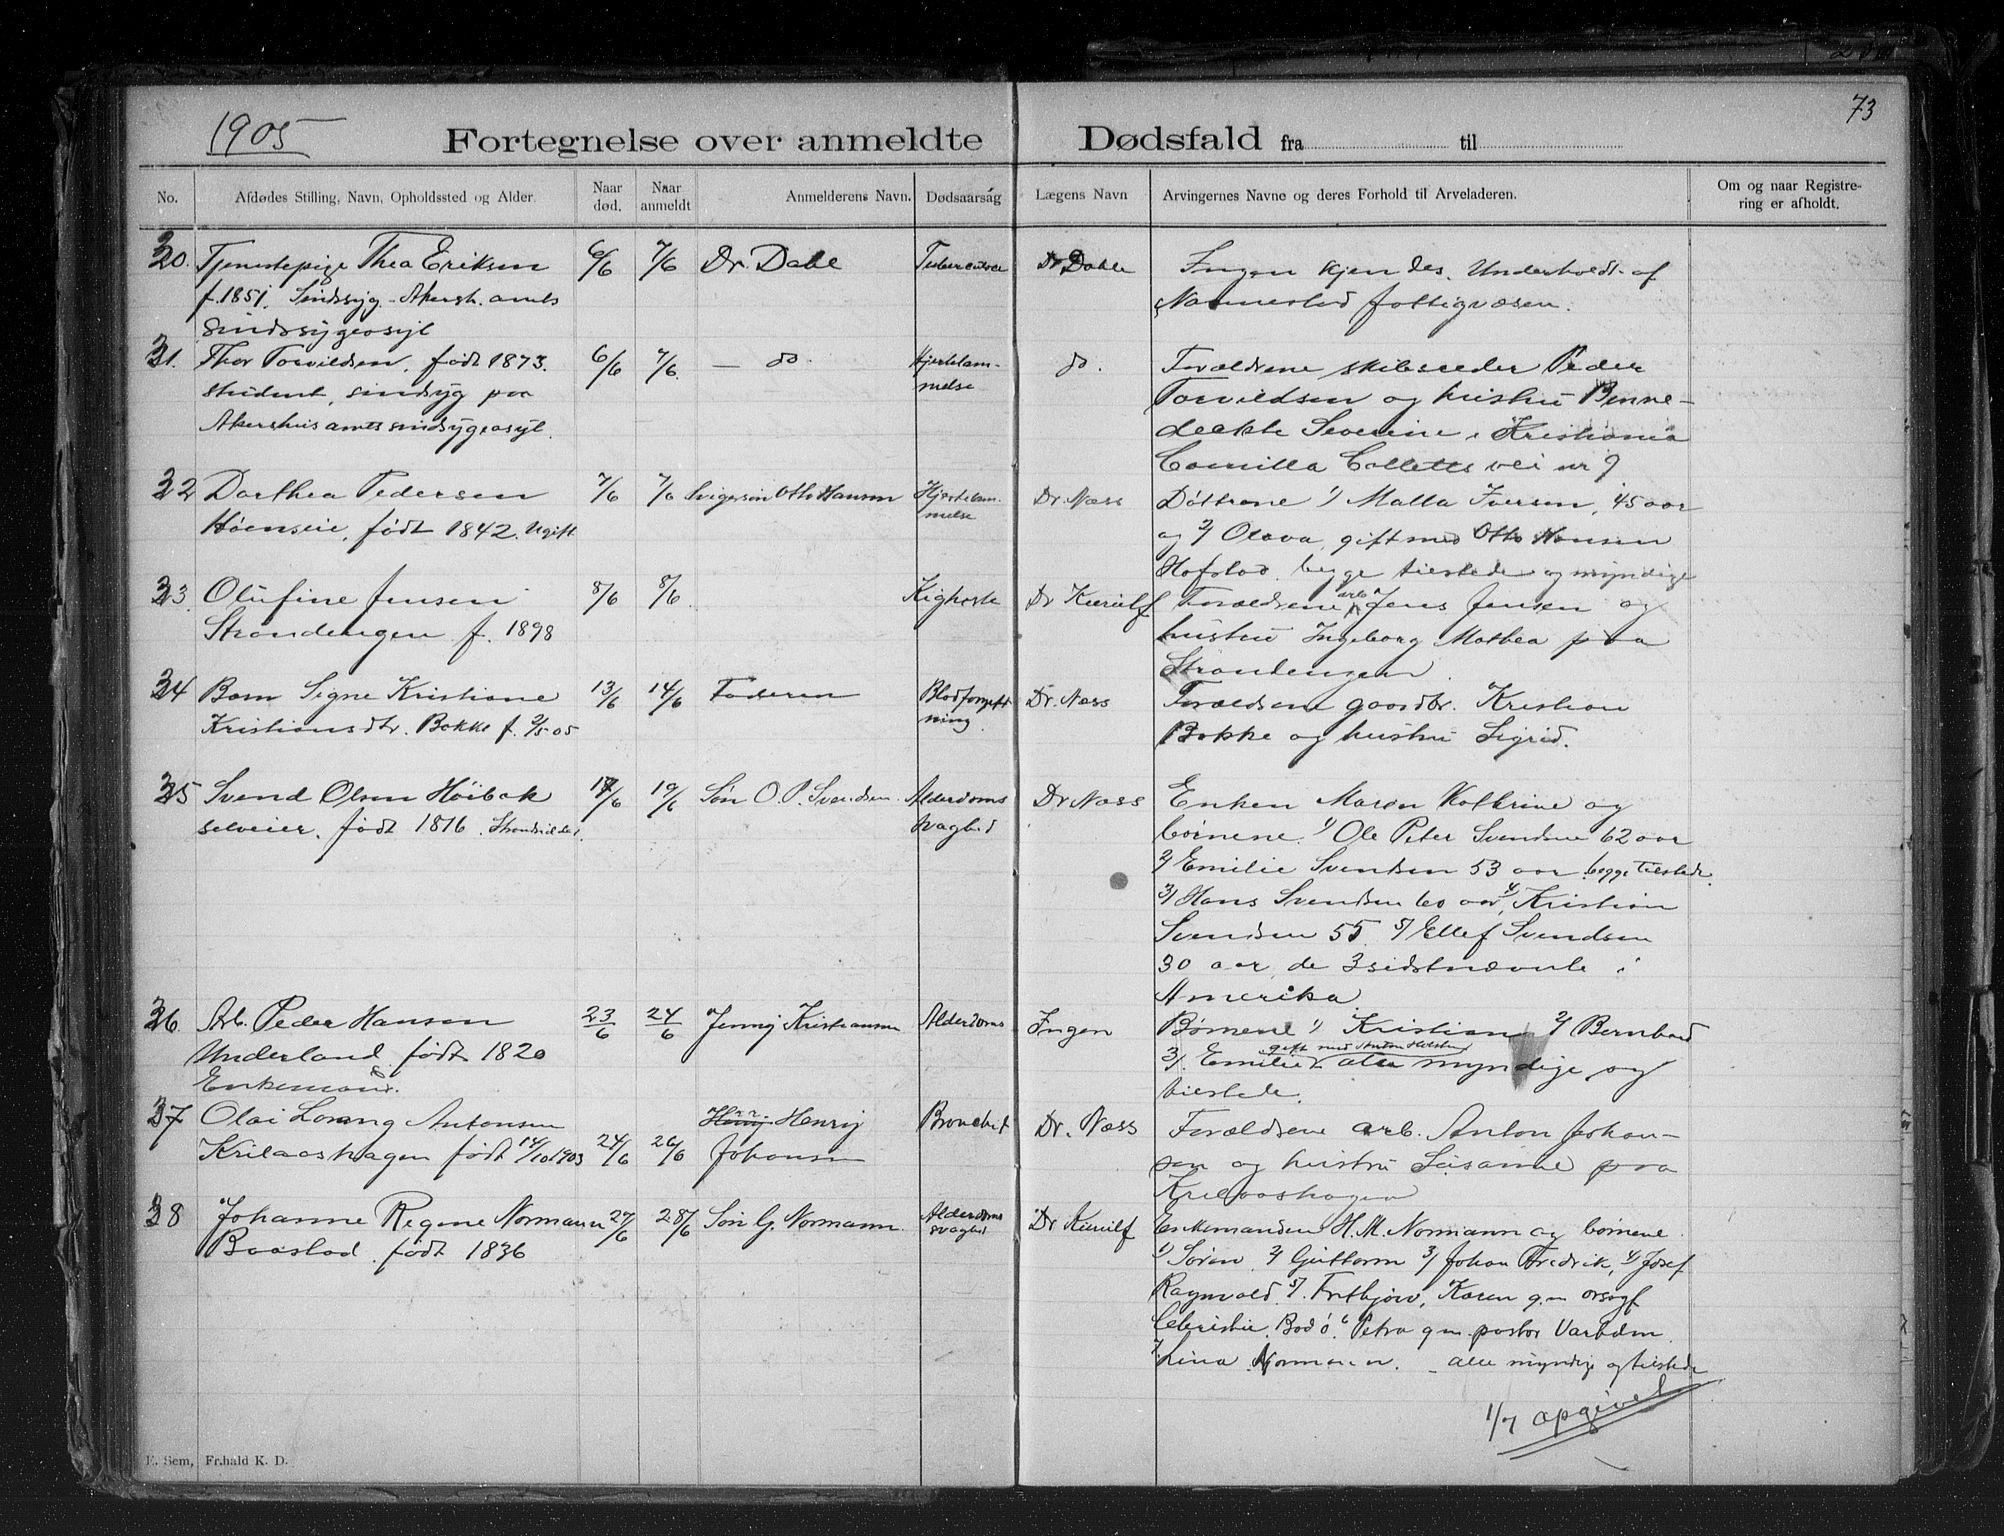 73
1905
Fortegnelse over anmeldte Dødsfald fra til
No.
Afdødes Stilling, Navn, Opholdssted og Alder.
Naar død.
Naar anmeldt
Anmelderens Navn.
Dødsaarsag
Lægens Navn
Arvingernes Navne og deres Forhold til Arveladeren.
Om og naar Registre-
ring er afholdt.
320. Tjenestepige Thea Eriksen 6/6 7/6 Dr. Dahl Tuberculose Dr Dahle Ingen kjendes. Underholdt af
f. 1851. Sindssyg. Akersh. amts Nannestad fattigvæsen.
sindssygeasyl
321. Thor Torvildsen, født 1873. 6/6 7/6. — do. Hjertelam- do. Forældrene skibsreder Peder
student, sindsyg paa melse Torvildsen og hustru Benne-
Akershus amts sindsygeasyl. deakte Severine, Kristiania
Camilla Colletts vei nr 9
322 Dorthea Pedersen 7/6 7/6 Svigersøn Otto Hansen Hjertelam- Dr. Næss Døttrene 1/ Malla Iversen, 45 aar
Høenseie, født 1842. Ugift melse og 2/ Olava, gift med Otto Hansen
Hofstad. begge tilstede og myndige
323. Olufine Jensen 8/6 8/6. Kighoste Dr Kierulf Forældrene arb. Jens Jensen og
Strandengen f. 1898 hustru Ingeborg Mathea paa
Strandengen.
324 Barn Signe Kristiane 13/6 14/6 Faderen Blodforgift- Dr. Næss Forældrene gaardbr. Kristian
Kristiansdtr. Bakke f. 2/5 05 ning Bakke og hustru Sigrid.
325 Svend Olsen Höibak 17/6 19/6 Søn O. P. Svendsen. Alderdoms Dr Næss Enken Maren Kathrine og
selveier, født 1816. svaghed børnene. 1/ Ole Peter Svendsen 62 aar
2/ Emilie Svendsen 53 aar. begge tilstede.
3/ Hans Svendsen 60 aar, 4/ Kristian
Svendsen 55. 5/ Ellef Svendsen
30 aar, de 3 sidstnævnte i
Amerika
326. Arb. Peder Hansen 23/6 24/6 Jenny Kristiansen Alderdoms Ingen Børnene 1/ Kristian 2/ Bernhard
Underland, født 1820 gift med Anton Holstad
3/. Emilie alle myndige og
Enkemand. tilstede.
327 Olai Lorang Antonsen Henry Henry Bronchit Dr. Næss Forældrene arb. Anton Johan-
Krilaashagen født 14/10 1903 24/6 26/6 Johansen sen og hustru Susanne paa
Krilaashagen
328 Johanne Regine Normann 27/6 28/6 Søn G. Normann. Alderdoms Dr Kierulf Enkemanden H. M. Normann og børnene
Baastad. født 1836 svaghed 1/ Søren 2/ Guttorm 3/ Johan Fredrik, 4/ Josef
Ragnvald. 5/. Frithjov, Karen g. m orsagf
Christie. Bodö. 6 Petra g m pastor Varbdm.
7. Lina Normann. — alle myndige og tilstede
1/7 opgivet
E. Sem, Fr.hald K. D.